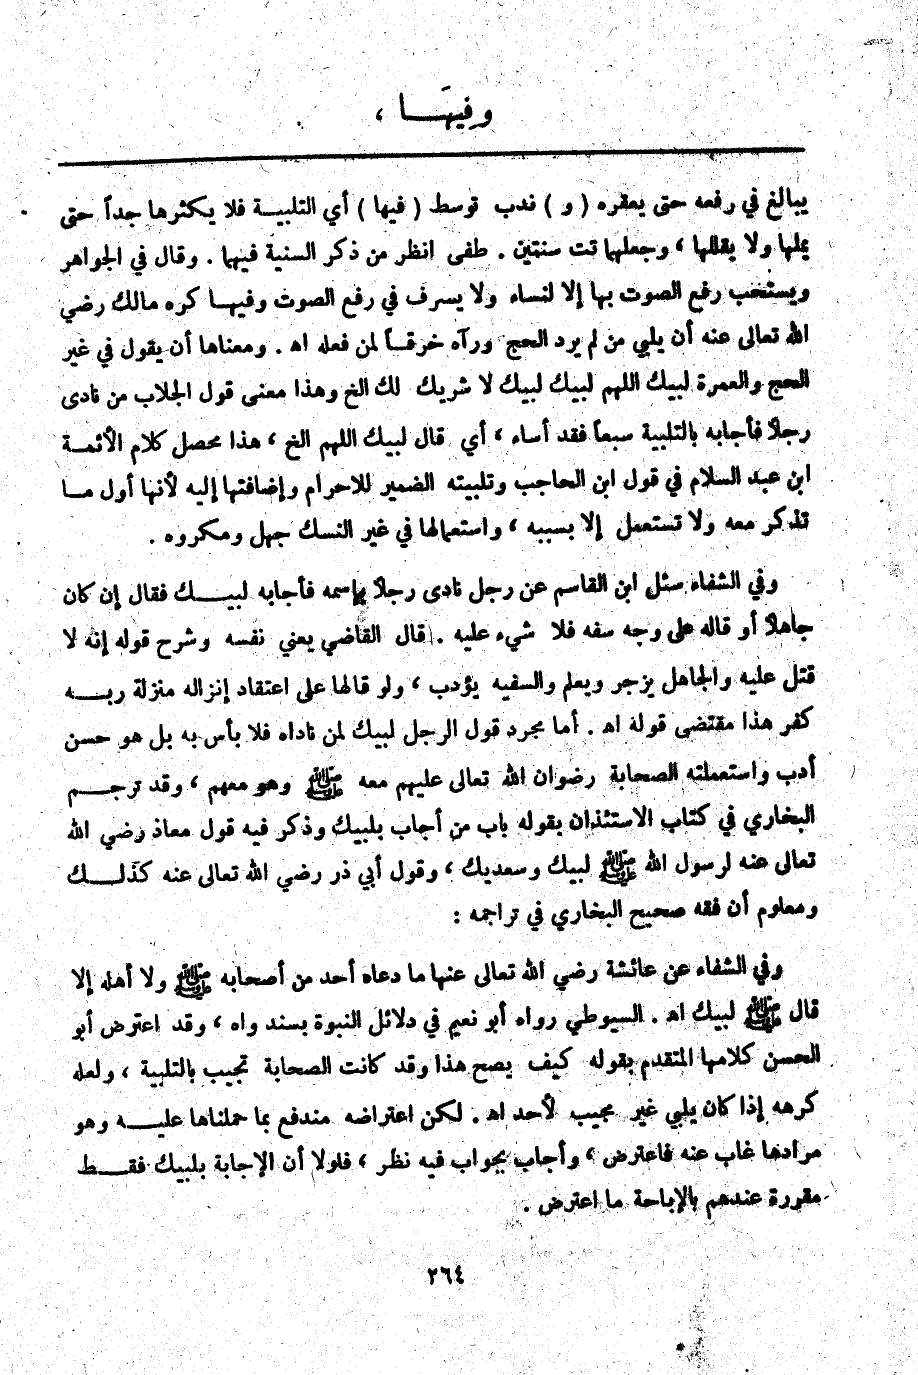 وفيهَـــا ،
يبالغ في رفعه حتى يعقره ( و ) ندب توسط ( فيها ) أي التلبيـة فلا يكثرها جداً حتى
يملها ولا يقللها ، وجعلهما تت سنتين . طفى انظر من ذكر السنية فيهما . وقال في الجواهر
ويستحب رفع الصوت بها إلا لنساء ولا يسرف في رفع الصوت وفيهـا كره مالك رضي
الله تعالى عنه أن يلبي من لم يرد الحج ورآه خرقـاً لمن فعله اه . ومعناها أن يقول في غير
الحج والعمرة لبيك اللهم لبيك لبيك لا شريك لك الخ وهذا معنى قول الجلاب من نادى
رجلاً فأجابه بالتلبية سبعاً فقد أساء ، أي قال لبيك اللهم الخ ، هذا محصل كلام الأئمـة
ابن عبد السلام في قول ابن الحاجب وتلبيته الضمير للاحرام وإضافتها إليه لأنها أول مـا
تذكر معه ولا تستعمل إلا بسببه ، واستعمالها في غير النسك جهل ومكروه .
وفي الشفاء سئل ابن القاسم عن رجل نادى رجلاً بإسمه فأجابه لبيـــك فقال إن كان
جاهلاً أو قاله على وجه سفه فلا شيء عليه . قال القاضي يعني نفسه وشرح قوله إنه لا
قتل عليه والجاهل يزجر ويعلم والسفيه يؤدب ، ولو قالها على اعتقاد إنزاله منزلة ربـــه
كفر هذا مقتضى قوله اه . أما مجرد قول الرجل لبيك لمن ناداه فلا بأس به بل هو حسن
أدب واستعملته الصحابة رضوان الله تعالى عليهم معه ﷺ وهو معهم ، وقد ترجـــم
البخاري في كتاب الاستئذان بقوله باب من أجاب بلبيك وذكر فيه قول معاذ رضي الله
تعالى عنه لرسول الله ﷺ لبيك وسعديك ، وقول أبي ذر رضي الله تعالى عنه كذلـــك
ومعلوم أن فقه صحيح البخاري في تراجمه :
وفي الشفاء عن عائشة رضي الله تعالى عنها ما دعاه أحد من أصحابه ﷺ ولا أهله إلا
قال ﷺ لبيك اه . السيوطي رواه أبو نعيم في دلائل النبوة بسند واه ، وقد اعترض أبو
الحسن كلامها المتقدم بقوله كيف يصح هذا وقد كانت الصحابة تجيب بالتلبية ، ولعله
كرهه إذا كان يلبي غير مجيب لأحد اه . لكن اعتراضه مندفع بما حملناها عليـــه وهو
مرادها غاب عنه فاعترض ، وأجاب بجواب فيه نظر ، فلولا أن الإجابة بلبيك فقـــط
مقررة عندهم بالإباحة ما اعترض .
٢٦٤